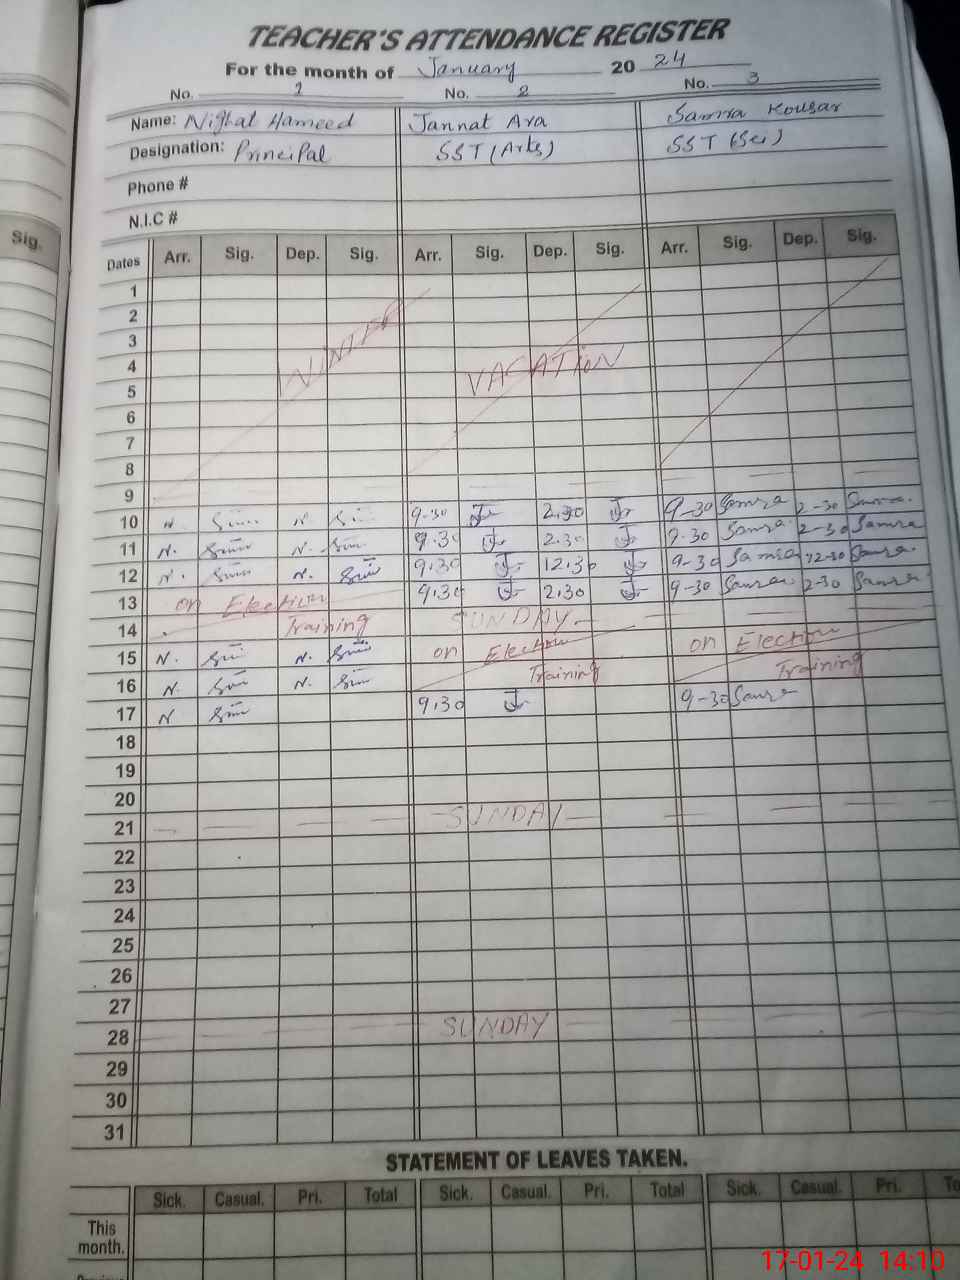 TEACHER'S ATTENDANCE REGISTER
For the month of January 2024
No. 1 No. 2 No. 3
Name: Nighat Hameed Jannat Ara Samra Kousar
Designation: Principal SST (Arts) SST (Sci)
Phone #
N.I.C #
Sig.
Dates Arr. Sig. Dep. Sig. Arr. Sig. Dep. Sig. Arr. Sig. Dep. Sig.
1
2
3 WINTER
4 VACATION
5
6
7
8
9
10 N. N. 9-30 2.30 9-30 Samra 2-30 Samra
11 N. N. 9.30 2.30 9.30 Samra 2-30 Samra
12 N. N. 9.30 12.30 9-30 Samra 12-30 Samra
13 on Election 9.30 2.30 9-30 Samra 2-30 Samra
Training
14 SUNDAY
15 N. N. on Election on Election
16 N. N. Training Training
17 N 9.30 9-30 Samra
18
19
20
21 SUNDAY
22
23
24
25
26
27
28 SUNDAY
29
30
31
STATEMENT OF LEAVES TAKEN.
Sick. Casual. Pri. Total Sick. Casual. Pri. Total Sick. Casual. Pri. To
This
month.
17-01-24 14:10